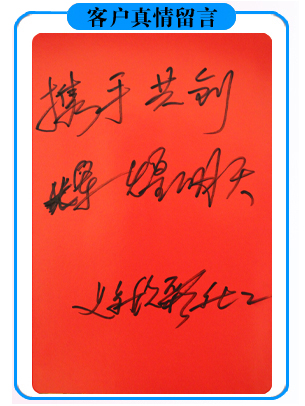 客户真情留言
携手共创
辉煌明天